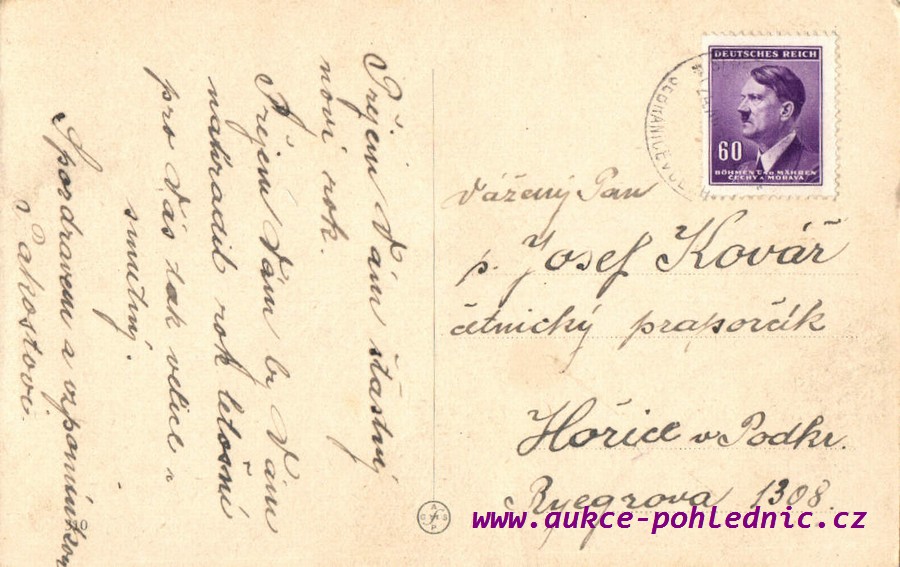 Přejem Vám šťastný
noví rok.
Přejem Vám by Vám
nahradil rok letošní
pro Vás tak velice
smutný.
S pozdravem a vzpomínkou
DEUTSCHES REICH
60
BÖHMEN U. MÄHREN
ČECHY A MORAVA
Vážený Pan
p. Josef Kovář
četnický praporčák
Hořice v Podkr.
Ryegrova 1308.
www.aukce-pohlednic.cz